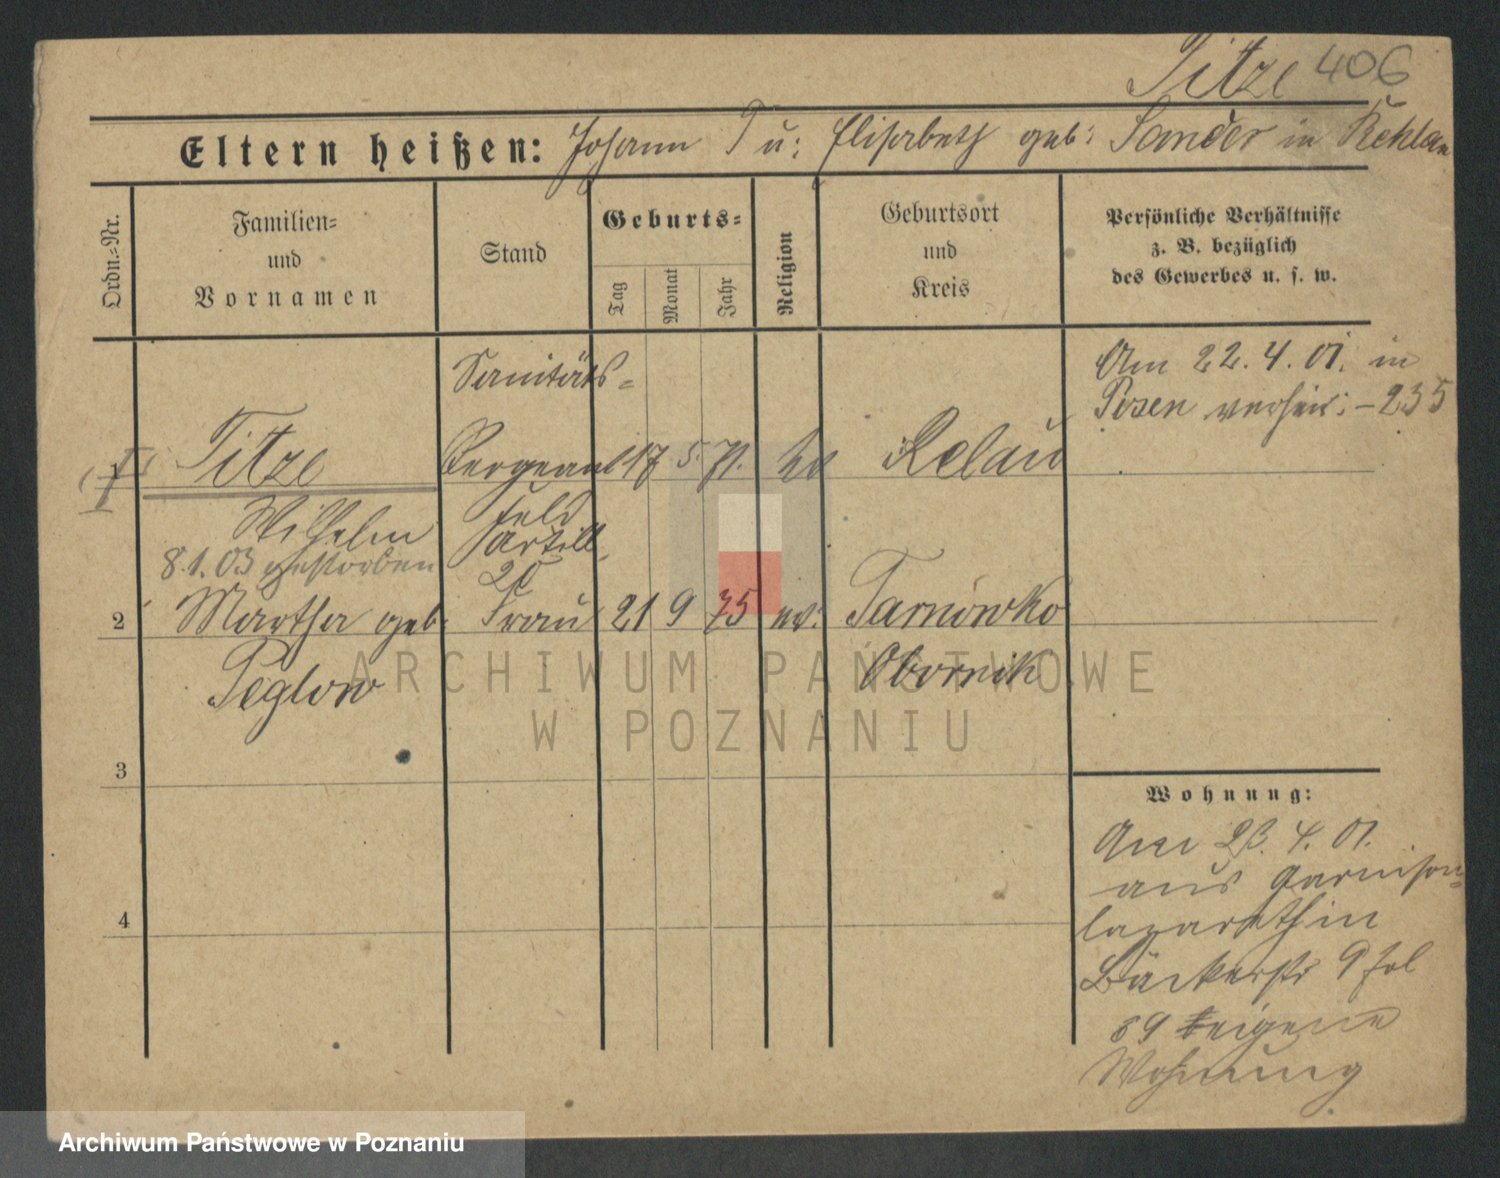 Titze 406
Eltern heißen: Johann T u: Elisabeth geb: Sander in
Ordn.=Nr.
Familien=
und
Vornamen
Stand
Geburts=
Tag
Monat
Jahr
Religion
Geburtsort
und
Kreis
Persönliche Verhältnisse
z. B. bezüglich
des Gewerbes u. s. w.
Am 22.4.01. in
Posen verheir: – 235
Sanitäts=
Titze Sergeant 17 5. 71.
Wilhelm Feld
Artill.
8.1.03 gestorben 20
2 Martha geb. Frau 21 9 75 ev: Tarnówko
Peglow Obornik
3
4
Wohnung:
Am 23.4.01.
aus Garnison=
lazareth in
Bäckerstr 9 fol
89 eigene
Wohnung
ARCHIWUM PAŃSTWOWE
W POZNANIU
Archiwum Państwowe w Poznaniu